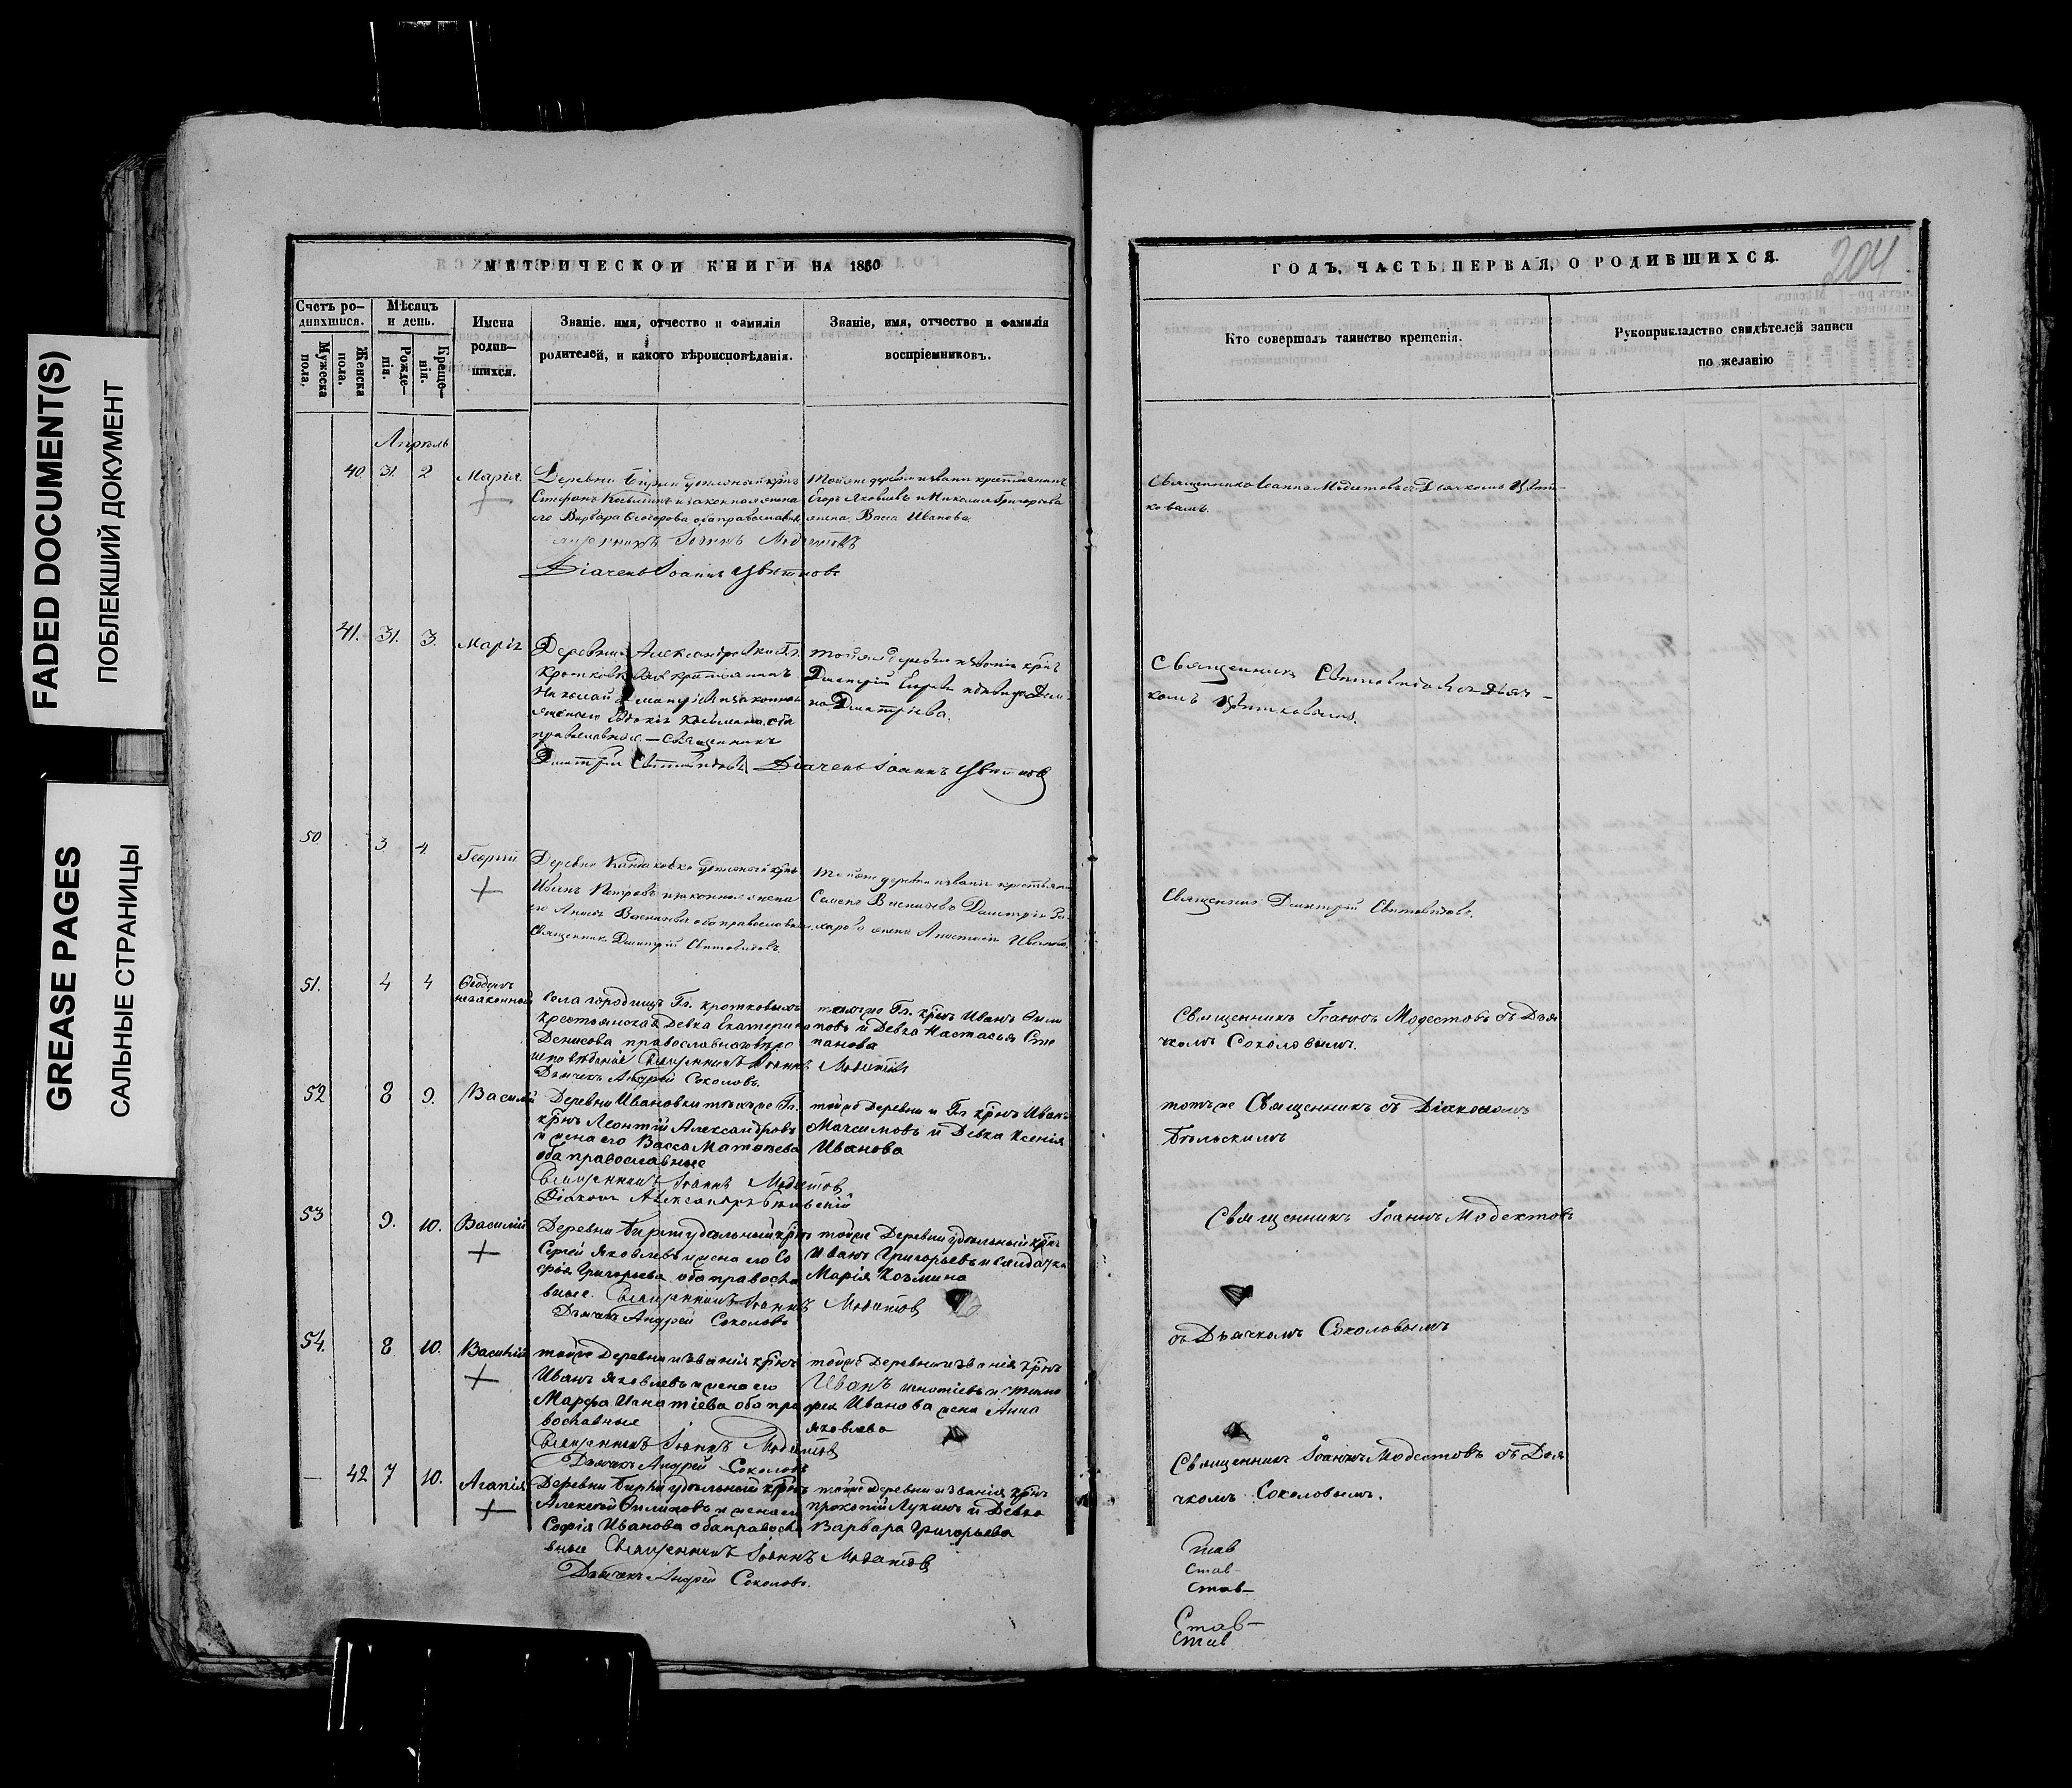 FADED DOCUMENT(S)
ПОБЛЕКШИЙ ДОКУМЕНТ
GREASE PAGES
САЛЬНЫЕ СТРАНИЦЫ
МЕТРИЧЕСКОЙ КНИГИ НА 1860
Счетъ ро-
дившихся.
Мужеска
пола.
Женска
пола.
Мѣсяцъ
и день.
Рожде-
нія.
Креще-
нія.
Имена
родив-
шихся.
Званіе, имя, отчество и фамилія
родителей, и какого вѣроисповѣданія.
Званіе, имя, отчество и фамилія
воспріемниковъ.
Апрель
40 31. 2 Марія.
Деревни Бирли удельный крнъ
Стефанъ Косьминъ и законная жена
его Варвара Ѳеодорова оба православн.
тойже деревни и звания крестьянинъ
Егоръ Яковлевъ и Николая Григорьева
жена Васса Иванова.
Священникъ Іоаннъ Модестовъ
Діачекъ Іоаннъ Цвѣтковъ
41. 31. 3. Марія
Деревни Александровки Гл.
Кротковыхъ крестьянинъ
Николай и законная
жена его Евдокія Косьмина оба
православные. — Священникъ
Дмитрій Свѣтовидовъ Діачекъ Іоаннъ Цвѣтковъ
тойже деревни и звания крнъ
Дмитрій Егоровъ и девица Дом-
на Дмитріева.
50 3 4. Георгій
Деревни удельный крнъ
Иванъ Петровъ и законная жена
его Анна оба православные.
Священникъ Дмитрій Свѣтовидовъ.
тойже деревни и званія крестьянинъ
Семенъ Дмитрія За-
харова жена Анастасія Иванова.
51. 4 4 Ѳеодотъ
незаконный
села городищъ Гл. кротковыхъ
крестьянская Девка Екатерина
Денисова православного вѣро
исповѣданія Священникъ Іоаннъ Модестовъ
Дьячекъ Андрей Соколовъ.
техъже Гл. крнъ Иванъ Фили
повъ и Девка Настасья Сте
панова
52 8 9. Василій
Деревни Ивановки техъже Гл.
крнъ Леонтій Александровъ
и жена его Васса Матвѣева
оба православные
Священникъ Іоаннъ Модестовъ
Діаконъ Александръ Бѣльскій
тойже Деревни и Гл крнъ Иванъ
Максимовъ и Девка Ксенія
Иванова
53 9. 10. Василій
Деревни Бирли удельный крнъ
Сергей Яковлевъ и жена его Со
фья Григорьева оба правосла
вные. Священникъ Іоаннъ Модестовъ
Дьячекъ Андрей Соколовъ
тойже Деревни удельный крнъ
Иванъ Григорьевъ и салдатка
Марія Козмина
54. 8 10. Василій
тойже Деревни и званія крнъ
Иванъ Яковлевъ и жена его
Марфа Игнатіева оба пра
вославные
Священникъ Іоаннъ Модестовъ
Дьячекъ Андрей Соколовъ
тойже Деревни и званія крнъ
Иванъ Игнатіевъ и Тимо
фея Иванова жена Анна
Яковлева
— 42 7 10. Агапія
Деревни Бирли удельный крнъ
Алексей Филиповъ и жена его
Софія Иванова оба правосла
вные Священникъ Іоаннъ Модестовъ
Дьячекъ Андрей Соколовъ.
тойже Деревни и званія крнъ
Прокопій Лукинъ и Девка
Варвара Григорьева
204
ГОДЪ, ЧАСТЬ ПЕРВАЯ, О РОДИВШИХСЯ.
Кто совершалъ таинство крещенія.
Рукоприкладство свидѣтелей записи
по желанію
Священникъ Іоаннъ Модестовъ съ Дьячкомъ Цвѣт-
ковымъ.
Священникъ Свѣтовидовъ съ Дьяч-
комъ Цвѣтковымъ.
Священникъ Дмитрій Свѣтовидовъ.
Священникъ Іоаннъ Модестовъ съ Дья
чкомъ Соколовымъ.
тотъже Священникъ съ Діакономъ
Бѣльскимъ
Священникъ Іоаннъ Модестовъ
съ Дьячкомъ Соколовымъ
Священникъ Іоаннъ Модестовъ съ Дья
чкомъ Соколовымъ.
став
став-
став-
Став-
став